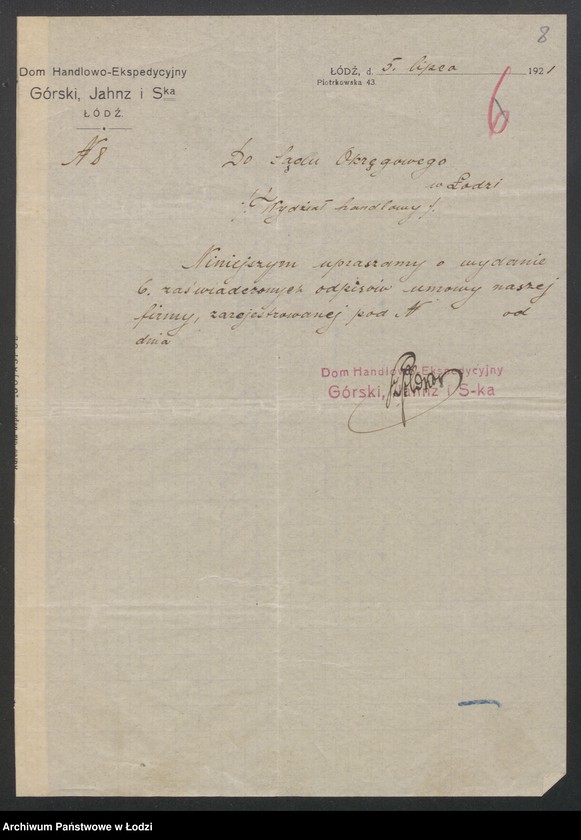 8
Dom Handlowo-Ekspedycyjny
Górski, Jahnz i Ska
ŁÓDŹ
ŁÓDŹ, d. 5. lipca 1921
Piotrkowska 43.
6
N 8
Do Sądu Okręgowego
w Łodzi
/: Wydział handlowy :/.
Niniejszym upraszamy o wydanie
6. zaświadczonych odpisów umowy naszej
firmy, zarejestrowanej pod N od
dnia
Dom Handlowo-Ekspedycyjny
Górski, Jahnz i S-ka
Archiwum Państwowe w Łodzi